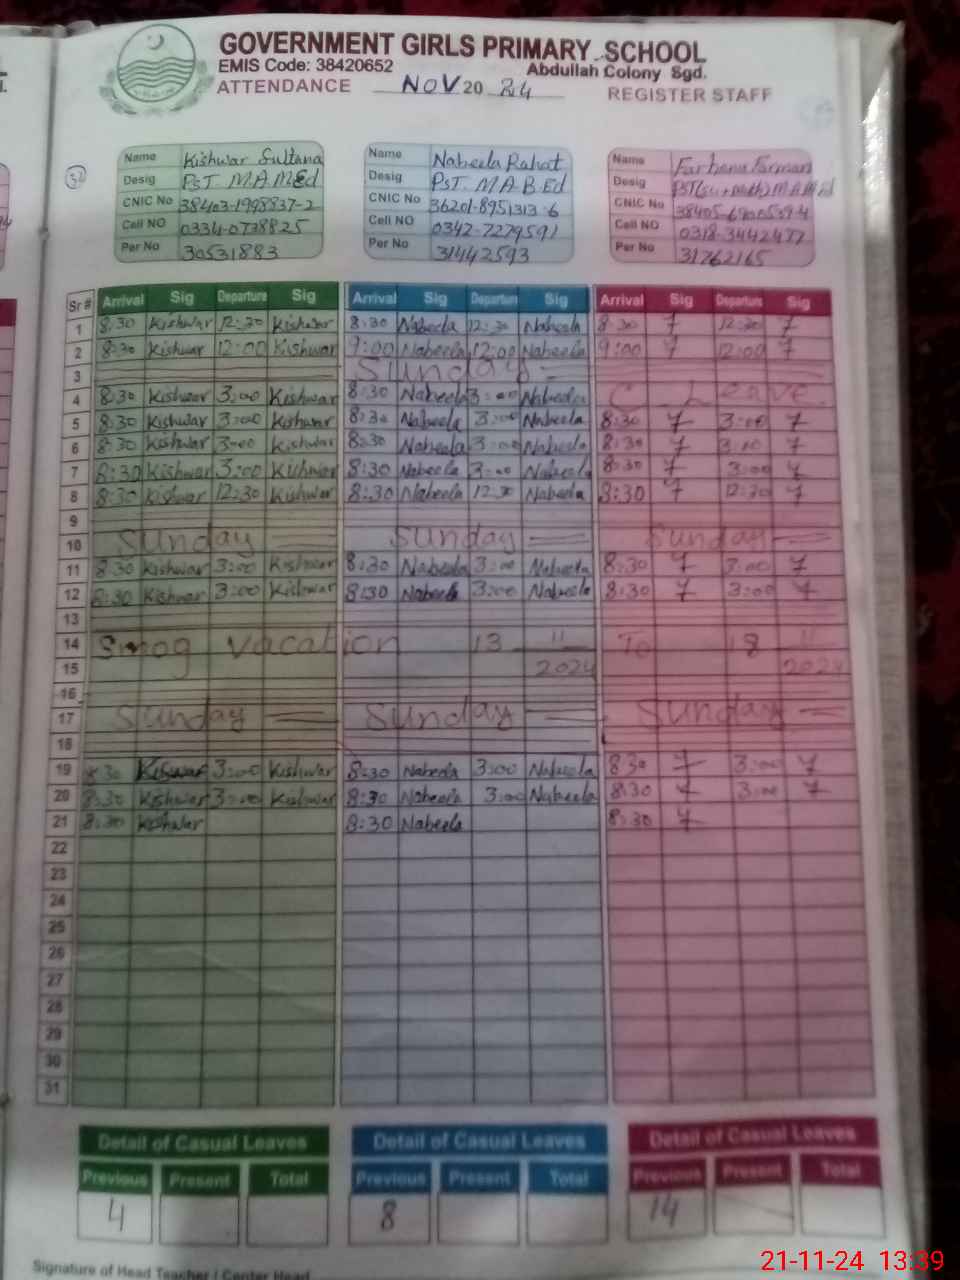 GOVERNMENT GIRLS PRIMARY SCHOOL
EMIS Code: 38420652 Abdullah Colony Sgd.
ATTENDANCE NOV 20 24 REGISTER STAFF
32
Name Kishwar Sultana
Desig PST. M.A M.Ed
CNIC No 38403-1998837-2
Cell NO 0334-0738825
Per No 30531883
Name Nabeela Rahat
Desig PST. M.A B.Ed
CNIC No 36201-8951313-6
Cell NO 0342-7279591
Per No 31442593
Name Farhana Farman
Desig
CNIC No
Cell NO 0318-3442477
Per No 31762165
Sr # Arrival Sig Departure Sig Arrival Sig Departure Sig Arrival Sig Departure Sig
1 8:30 Kishwar 12:30 Kishwar 8:30 Nabeela 12:30 Nabeela 8:30 12:30
2 8:30 Kishwar 12:00 Kishwar 9:00 Nabeela 12:00 Nabeela 9:00 12:00
3 Sunday
4 8:30 Kishwar 3:00 Kishwar 8:30 Nabeela 3:00 Nabeela C Leave.
5 8:30 Kishwar 3:00 Kishwar 8:30 Nabeela 3:00 Nabeela 8:30 3:00
6 8:30 Kishwar 3:00 Kishwar 8:30 Nabeela 3:00 Nabeela 8:30 3:00
7 8:30 Kishwar 3:00 Kishwar 8:30 Nabeela 3:00 Nabeela 8:30 3:00
8 8:30 Kishwar 12:30 Kishwar 8:30 Nabeela 12:30 Nabeela 8:30 12:30
9
10 Sunday Sunday Sunday
11 8:30 Kishwar 3:00 Kishwar 8:30 Nabeela 3:00 Nabeela 8:30 3:00
12 8:30 Kishwar 3:00 Kishwar 8:30 Nabeela 3:00 Nabeela 8:30 3:00
13
14 Smog vacation 13 11 To 18 11
15 2024 2024
16
17 Sunday Sunday Sunday
18
19 8:30 Kishwar 3:00 Kishwar 8:30 Nabeela 3:00 Nabeela 8:30 3:00
20 8:30 Kishwar 3:00 Kishwar 8:30 Nabeela 3:00 Nabeela 8:30 3:00
21 8:30 Kishwar 8:30 Nabeela 8:30
22
23
24
25
26
27
28
29
30
31
Detail of Casual Leaves Detail of Casual Leaves Detail of Casual Leaves
Previous Present Total Previous Present Total Previous Present Total
4 8 14
Signature of Head Teacher / Center Head
21-11-24 13:39